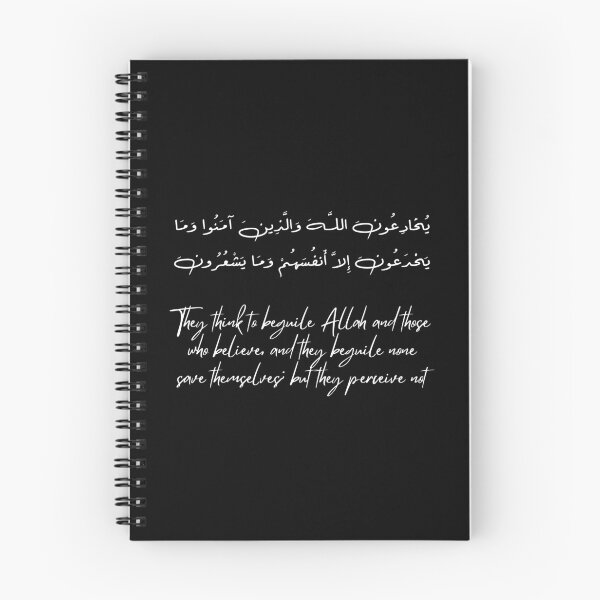 يُخَادِعُونَ اللَّهَ وَالَّذِينَ آمَنُوا وَمَا
يَخْدَعُونَ إِلاَّ أَنفُسَهُمْ وَمَا يَشْعُرُونَ
They think to beguile Allah and those
who believe, and they beguile none
save themselves; but they perceive not